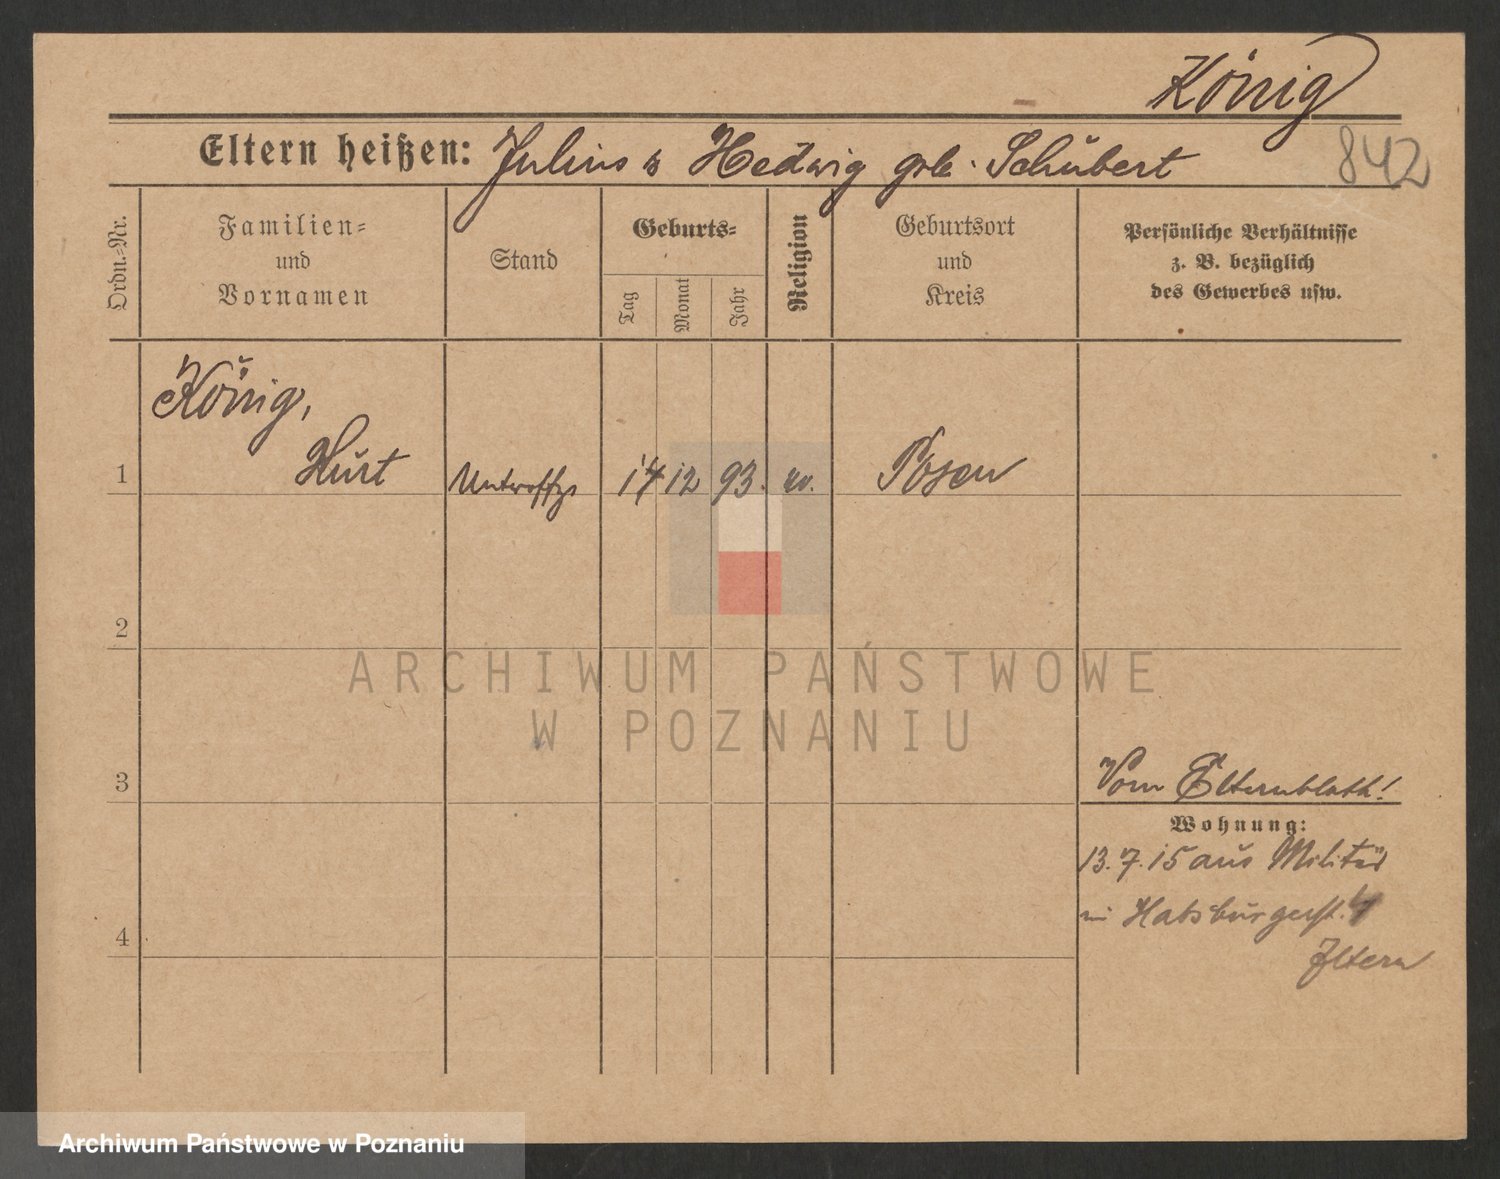 König
842
Eltern heißen: Julius u Hedwig geb. Schubert
Ordn.-Nr.
Familien-
und
Vornamen
Stand
Geburts-
Tag
Monat
Jahr
Religion
Geburtsort
und
Kreis
Persönliche Verhältnisse
z. B. bezüglich
des Gewerbes usw.
König,
1 Kurt Unteroffz 14 12 93. ev. Posen
2
ARCHIWUM PAŃSTWOWE
W POZNANIU
3
Vom Elternblatt!
Wohnung:
13.7.15 aus Militär
in Habsburgerst. 4
4
Eltern
Archiwum Państwowe w Poznaniu